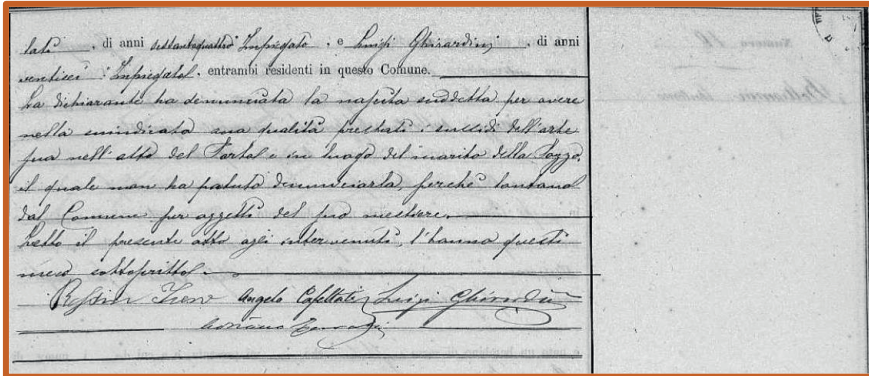 lati, di anni settantaquattro Impiegato, e Luigi Ghirardini, di anni
ventisei Impiegato, entrambi residenti in questo Comune.
La dichiarante ha denunciata la nascita suddetta per avere
nella suindicata sua qualità prestati i sussidi dell'arte
sua nell'atto del Parto e in luogo del marito della Pozzo,
il quale non ha potuto denunciarla, perchè lontano
dal Comune per oggetti del suo mestiere.
Letto il presente atto agli intervenuti, l'hanno questi
meco sottoscritto.
Angelo Cafellati Luigi Ghirardini
Numero